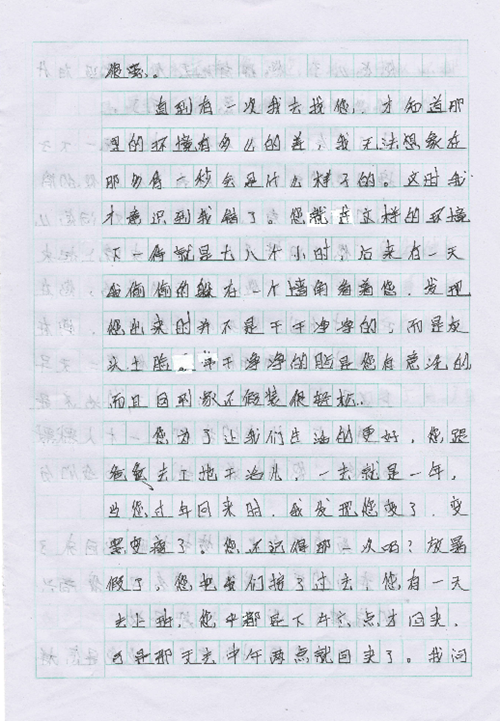 您要。
直到有一次我去找您，才知道那
里的环境有多么的差，我无法想象在
那多待一秒会是什么样子的。这时我
才意识到我错了。您就是在这样的环境
下一待就是七八个小时，后来有一天
我偷偷的躲在一个墙角看着您，发现
您出来时并不是干干净净的，而是灰
头土脸。干干净净的脸是您有意洗的
而且回到家还假装很轻松。
一您为了让我们生活的更好，您跟
爸爸去工地干活儿，一去就是一年，
当您过年回来时，我发现您变了，变
黑变瘦了。您还记得那一次吗？放暑
假了，您把我们接了过去，您有一天
去上班，您中都是下午六点才回来，
可是那天去中午两点就回来了。我问